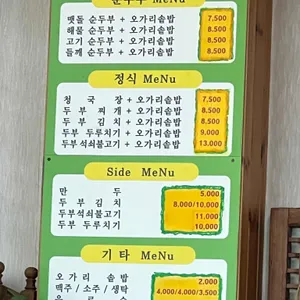 순두부 MeNu
맷돌 순두부 + 오가리솥밥 7,500
해물 순두부 + 오가리솥밥 8,500
고기 순두부 + 오가리솥밥 8,500
들깨 순두부 + 오가리솥밥 8,500
정식 MeNu
청 국 장 + 오가리솥밥 7,500
두 부 찌 개 + 오가리솥밥 8,500
두 부 김 치 + 오가리솥밥 8,500
두부 두루치기 + 오가리솥밥 9,000
두부석쇠불고기 + 오가리솥밥 13,000
Side MeNu
만 두 5,000
두 부 김 치 8,000/10,000
두부석쇠불고기 11,000
두부 두루치기 10,000
기 타 MeNu
오 가 리 솥 밥 2,000
맥주 / 소주 / 생탁 4,000/4,000/3,500
음 료 수